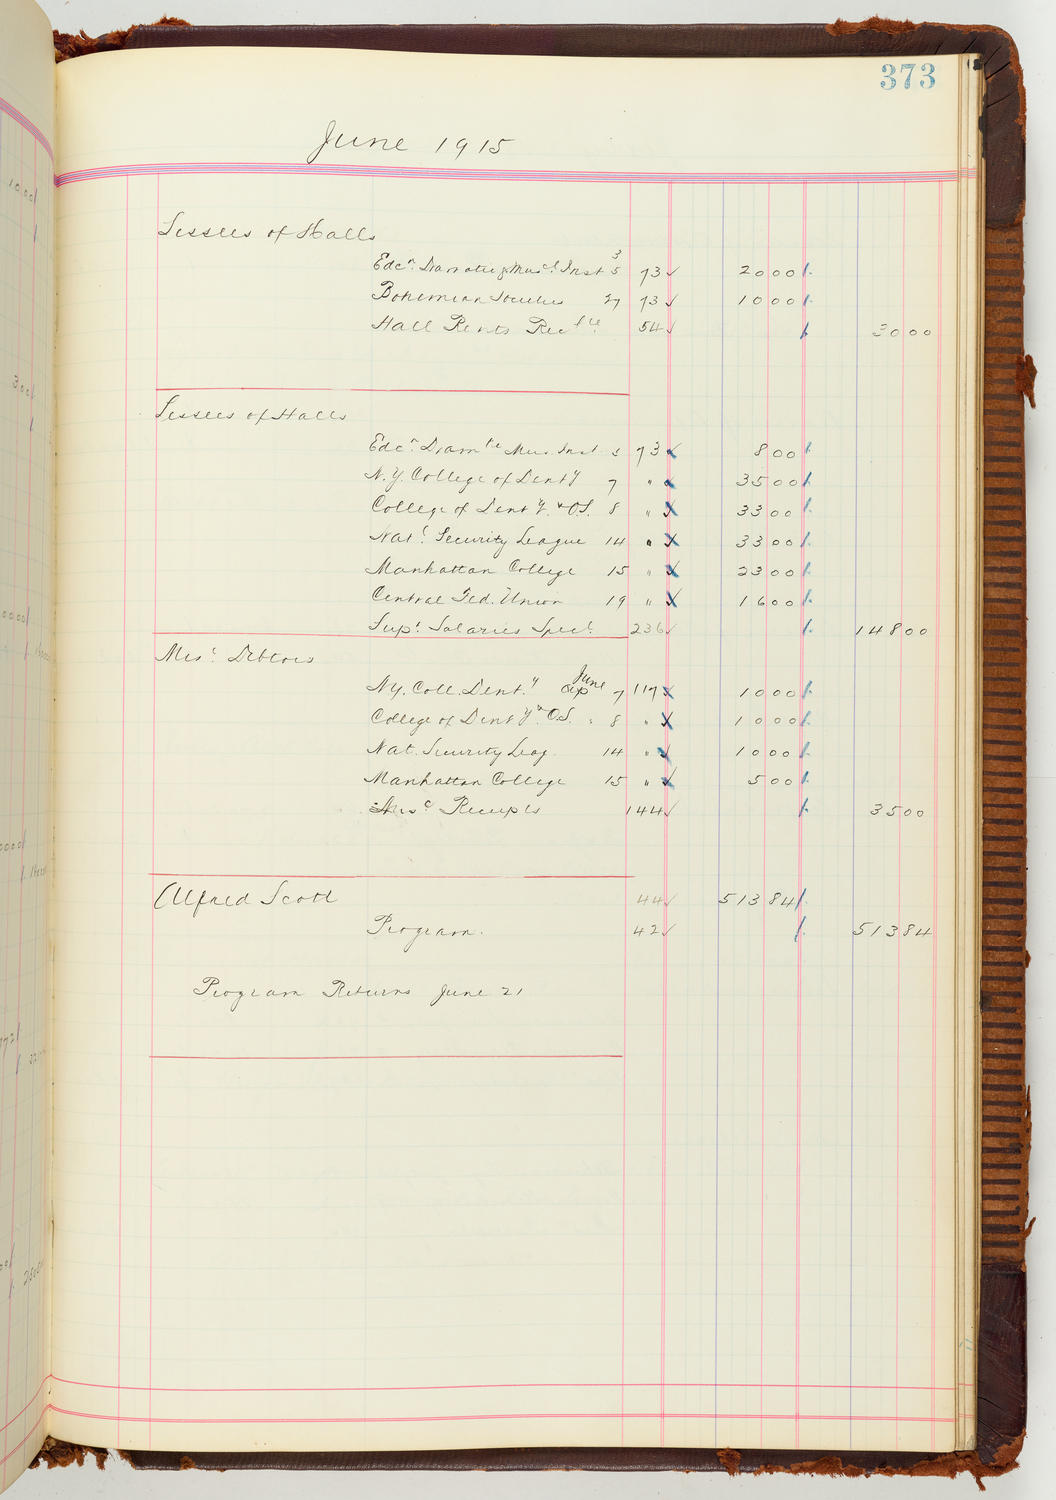 373
June 1915
Lessees of Halls
3
Edcn. Dramatic & Muscl. Inst 5 73 ✓ 2000
Bohemian Societies 27 73 ✓ 1000
Hall Rents Rec 54 ✓ 3000
Lessees of Halls
Edcn. Dramtc Mus. Inst 5 73 800
N.Y. College of Denty 7 " 3500
College of Denty. & O.S. 8 " 3300
Natl. Security League 14 " 3300
Manhattan College 15 " 2300
Central Fed. Union 19 " 1600
Supt. Salaries Specl. 236 ✓ 14800
Misc. Debtors
June
NY. Coll. Dent.y 7 117 1000
College of Denty & O.S. " 8 " 1000
Nat. Security Leag. 14 " 1000
Manhattan College 15 " 500
Misc Receipts 144 ✓ 3500
Alfred Scott 44 ✓ 51384
Program. 42 ✓ 51384
Program Returns June 21